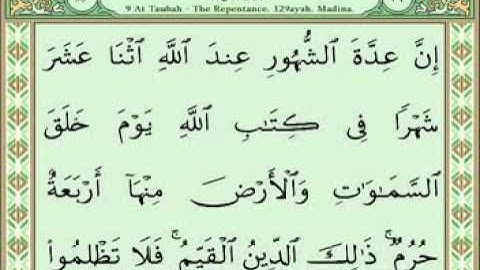 9 At Taubah - The Repentance, 129ayah, Madina.
إِنَّ عِدَّةَ ٱلشُّهُورِ عِندَ ٱللَّهِ ٱثْنَا عَشَرَ
شَهْرًا فِى كِتَـٰبِ ٱللَّهِ يَوْمَ خَلَقَ
ٱلسَّمَـٰوَٰتِ وَٱلْأَرْضَ مِنْهَآ أَرْبَعَةٌ
حُرُمٌ ۚ ذَٰلِكَ ٱلدِّينُ ٱلْقَيِّمُ ۚ فَلَا تَظْلِمُوا۟